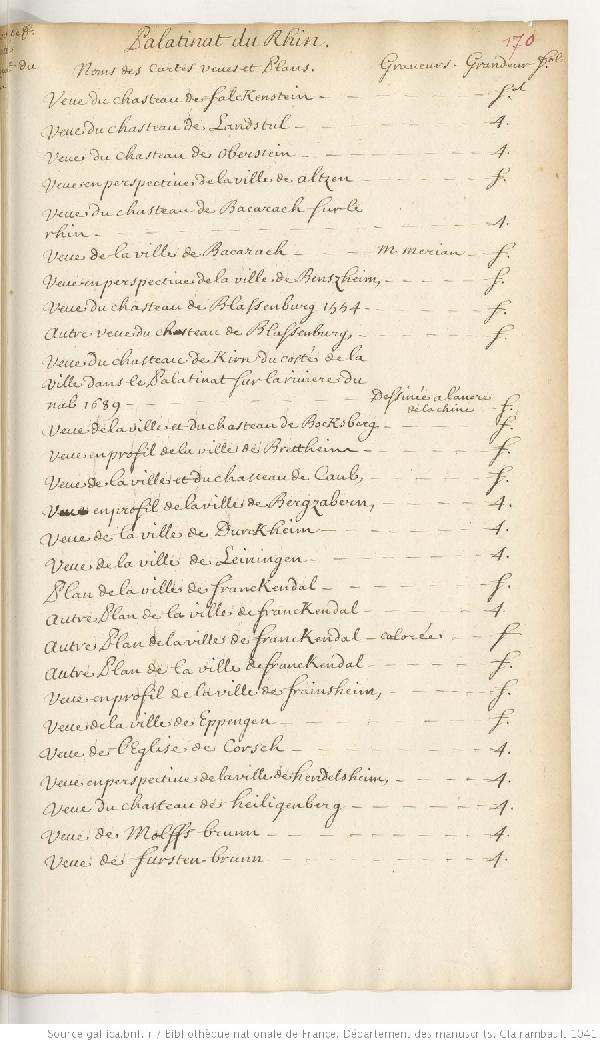 Palatinat du Rhin.
170
Noms des Cartes veues et Plans. Graveurs. Grandeur
Veue du chasteau de falckenstein - f.
Veue du chasteau de Landstul - 4.
Veue du chasteau de oberstein - 4.
Veue en perspective de la ville de altzen - f.
Veue du chasteau de Bacarach sur le
rhin - 4.
Veue de la ville de Bacarach - m merian - f.
Veue en perspective de la ville de Benszheim, - f.
Veue du chasteau de Blassenburg 1554 - f.
Autre veue du chasteau de Blassenburg, - f.
Veue du chasteau de Kirn du costé de la
ville dans le Palatinat sur la riviere du
nab 1689 - Dessinée a l'ancre
de la chine f.
Veue de la ville et du chasteau de Bocksberg - f.
Veue en profil de la ville de Brettheim - f.
Veue de la ville et du chasteau de Caub, f.
Veue en profil de la ville de Bergzabern, - 4.
Veue de la ville de Durckheim - 4.
Veue de la ville de Leiningen - 4.
Plan de la ville de franckendal - f.
Autre Plan de la ville de franckendal - 4
Autre Plan de la ville de franckendal - colorée - f
Autre Plan de la ville de franckendal - f.
Veue en profil de la ville de frainsheim, - f.
Veue de la ville de Eppengen - f.
Veue de l'Eglise de Corsch - 4.
Veue en perspective de la ville de hendelsheim, - 4.
Veue du chasteau de heiligenberg - 4.
Veue de Molffs brunn - 4.
Veue de fursten-brunn - 4.
Source gallica.bnf.fr / Bibliothèque nationale de France. Département des manuscrits. Clairambault 1041